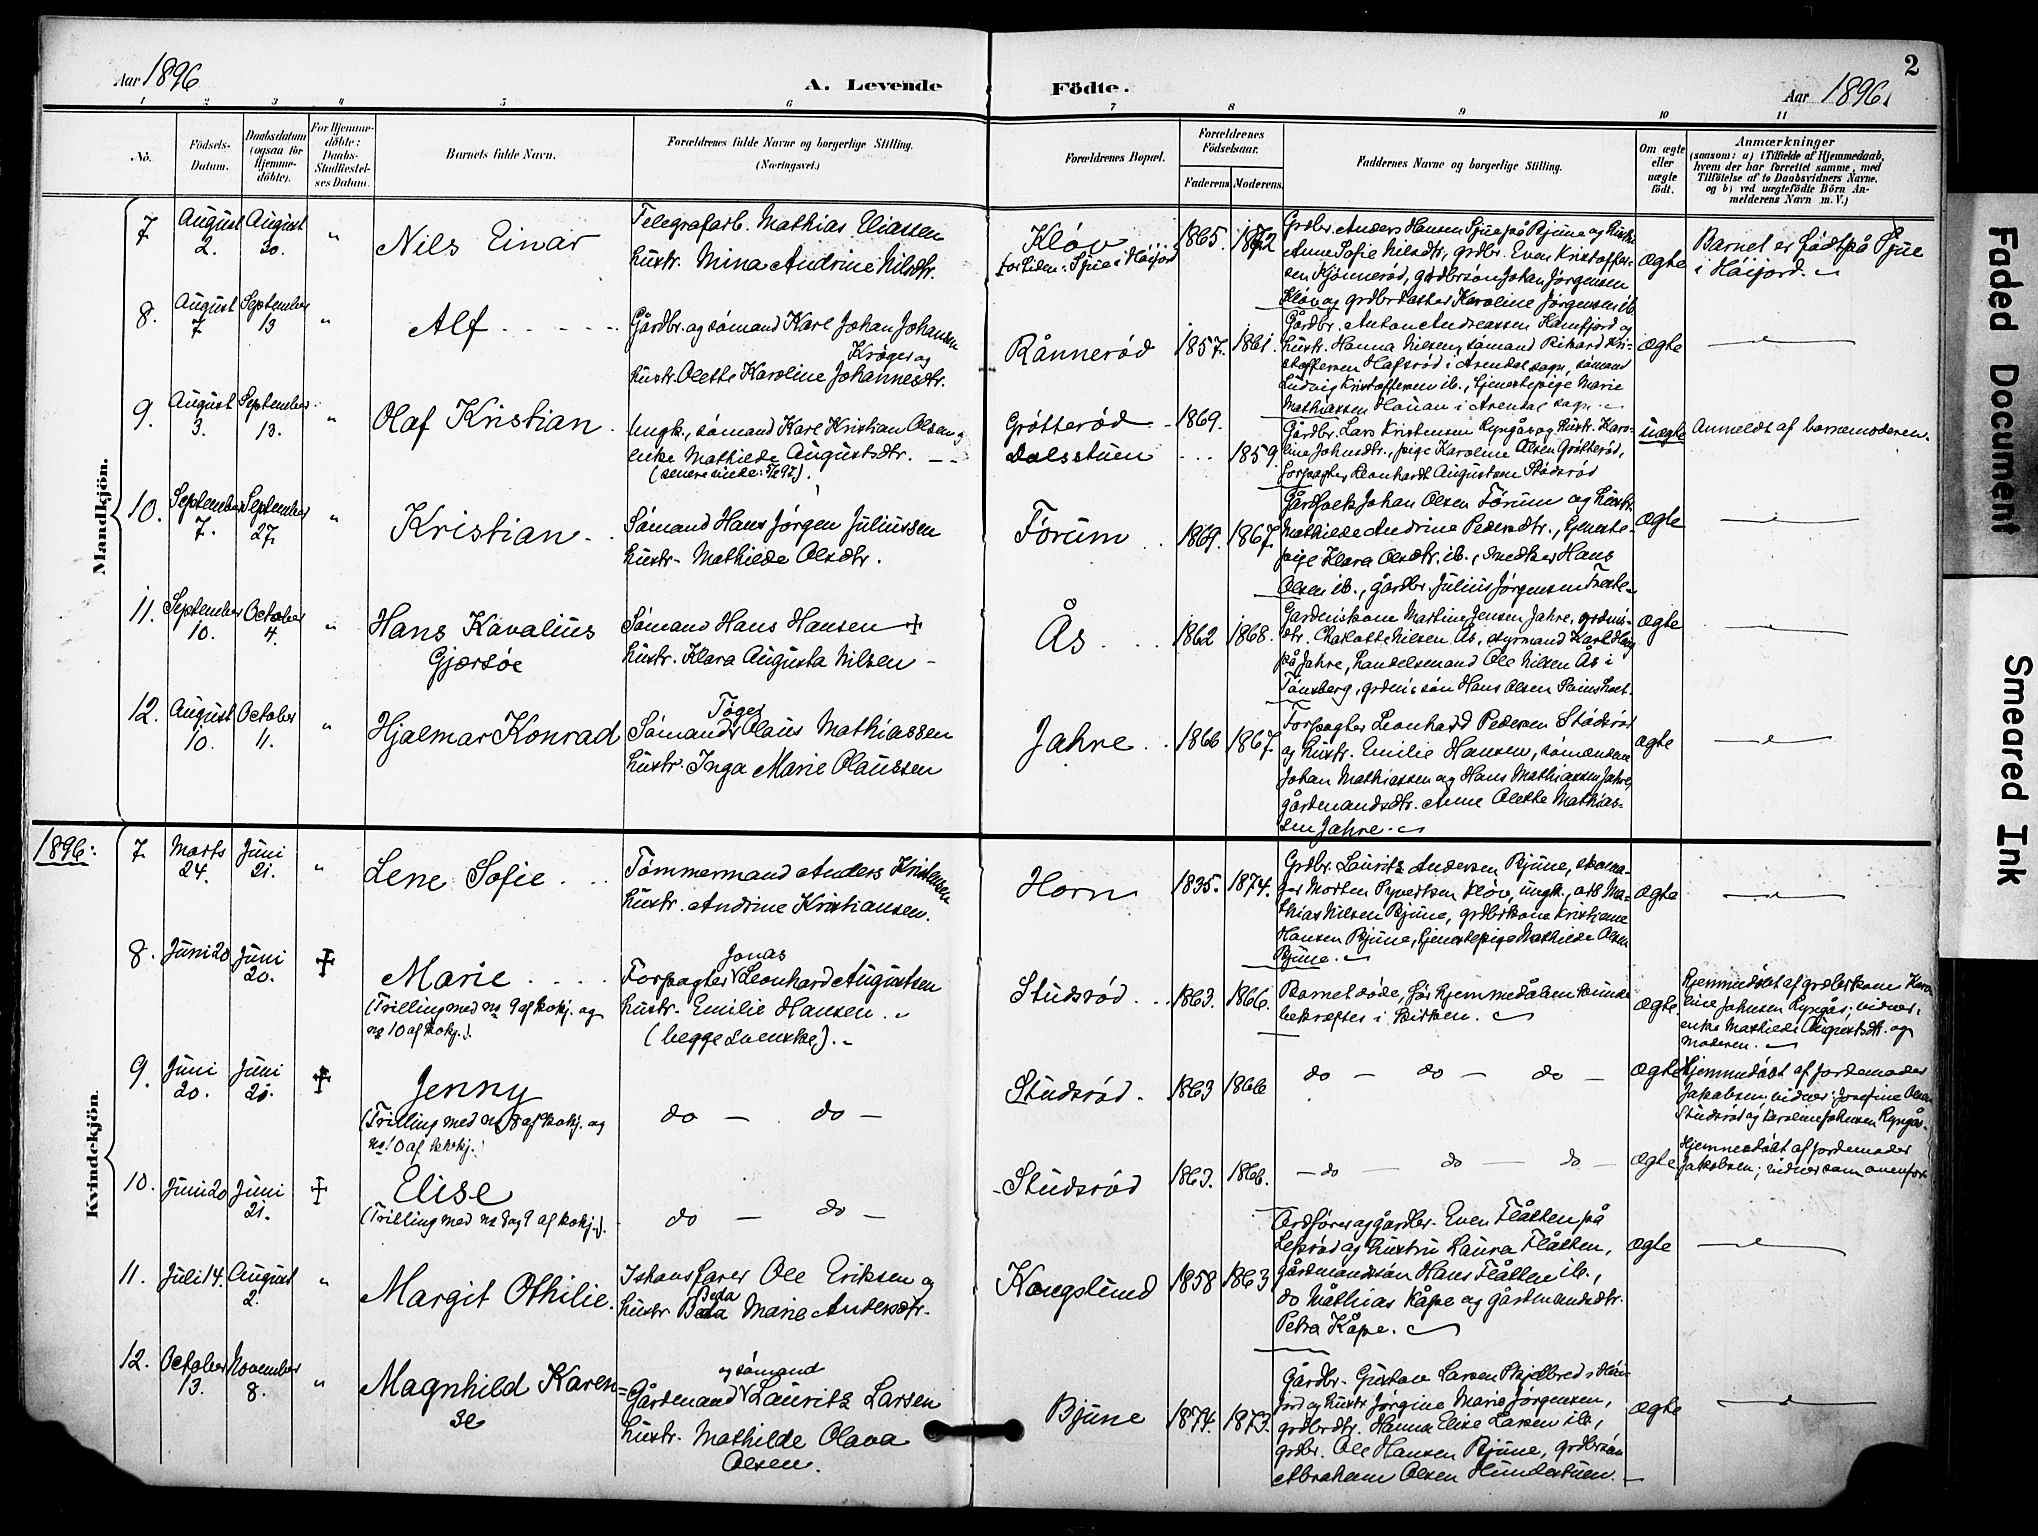 2
Aar 1896
A. Levende
Födte.
Aar 1896.
1 2 3 4 5 6 7 8 9 10 11
No.
Födsels-
Datum.
Daabsdatum
(ogsaa for
Hjemme-
döbte).
For Hjemme-
döbte:
Daabs-
Stadfæstel-
ses Datum.
Barnets fulde Navn.
Forældrenes fulde Navne og borgerlige Stilling.
(Næringsvei.)
Forældrenes Bopæl.
Forældrenes
Födselsaar.
Faderens
Moderens.
Faddernes Navne og borgerlige Stilling.
Om ægte
eller
uægte
födt.
Anmærkninger
(saasom: a) i Tilfælde af Hjemmedaab,
hvem der har forrettet samme, med
Tilföielse af to Daabsvidners Navne.
og b) ved uægtefödte Börn An-
melderens Navn m. V.)
Mandkjön.
7.
August
2.
August
30.
"
Nils Einar
Telegrafarb. Mathias Eliassen
hustr. Mina Andrine Nilsdtr.
Kløv
for tiden: Sjue i Høijord
1865.
1872
Grdbr. Anders Hansen Sjue på Bjune og hustr.
Anne Sofie Nilsdtr, grdbr. Even Kristoffer-
sen Kjønnerød, grdbrsøn Johan Jørgensen
Kløv og grdbrdatter Karoline Jørgensen ib.
ægte
Barnet er født på Sjue
i Høijord.
8.
August
7
September
13
"
Alf
Gårdbr. og sømand Karl Johan Johansen
Krøger og
hustr. Olette Karoline Johannesdtr.
Rånnerød
1857.
1861.
Gårdbr. Anton Andreassen Kamfjord og
hustr. Hanna Nilsen, sømand Rikard Kri-
stoffersen Hafsrød i Arendal sogn, sømand
Ludvig Kristoffersen ib., tjenestepige Marie
Mathiassen Hauan i Arendal sogn.
ægte
9.
August
3.
September
13.
"
Olaf Kristian
Ungk., sømand Karl Kristian Olsen og
enke Mathilde Augustsdtr.
Grøtterød
Dalsstuen
1869.
1859.
Gårdbr. Lars Kristensen Ryngås og hustr. Karo-
line Johnsdtr., pige Karoline Olsen Grøtterød,
forpagter Leonhardt Augustsen Stådsrød
uægte
Anmeldt af barnemoderen.
10.
September
7.
September
27.
"
Kristian
Sømand Hans Jørgen Juliussen
hustr. Mathilde Olsdtr.
Førum
1869.
1867.
Johan Olsen Førum og hustr.
Mathilde Andrine Pedersdtr., tjeneste-
pige Klara Olsdtr. ib., snedker Hans
Olsen ib., gårdbr. Julius Jørgensen
ægte
11.
September
10.
October
4.
"
Hans Kavalius
Gjersøe
Sømand Hans Hansen
hustr. Klara Augusta Nilsen
Ås
1862
1868.
Martine Jensen Jahre,
dtr. Charlotte Nilsen Ås, styrmand Karl
på Jahre, handelsmand Ole Nilsen Ås i
Tønsberg, søn Hans Olsen
ægte
12.
August
10.
October
11.
"
Hjalmar Konrad
Tøger
Sømand Olaus Mathiassen
hustr. Inga Marie Olaussen
Jahre
1866
1867.
Forpagter Leonhard Pedersen Stådsrød
og hustr. Emilie Hansen, sømændene
Johan Mathiassen og Hans Mathiassen Jahre,
gårdmandsdtr. Anne Olette Mathias-
sen Jahre.
ægte
1896:
Kvindekjön.
7.
Marts
24.
Juni
21.
"
Lene Sofie
Tømmermand Anders Kristensen
hustr. Andrine Kristiansen.
Horn
1835.
1874.
Grdbr. Lauritz Andersen Bjune, skoma-
ger Morten Syvertsen Kløv, ungk., arb Ma-
thias Nilsen Bjune, grdbrkone Kristiane
Hansen Bjune, tjenestepige Mathilde Olsen
Bjune.
ægte
8.
Juni 20
Juni
20.
Marie
(Trilling med no 9 af kvkj. og
no 10 af kvkj.).
Jonas
Forpagter Leonhard Augustsen
hustr. Emilie Hansen.
(begge svenske).
Studsrød
1863.
1866.
Barnet døde, før hjemmedåben kunde
bekræftes i kirken.
ægte
Hjemmedøbt af grdbrkone Karo-
line Johnsen Ryngås; vidner:
enke Mathilde Augustsdtr. og
moderen.
9.
Juni
20.
Juni
21.
Jenny
(Trilling med no 8 af kvkj. og
no 10 af kvkj.
do — do —
Studsrød.
1863
1866
do — do — do —
ægte
Hjemmedøbt af jordemoder
Jakobsen; vidner: Josefine Olsen
Studsrød og Karoline Johnsen Ryngås.
10.
Juni 20
Juni
21.
Elise
(Trilling med no 8 og 9 af kvkj.).
do — do —
Studsrød
1863.
1866.
— do — do — do —
ægte
Hjemmedøbt af jordemoder
Jakobsen; vidner som ovenfor
11.
Juli 14.
August
2.
"
Margit Othilie.
Ishavsfarer Ole Eriksen og
Beda
hustr Beda Marie Andersdtr.
Kongslund
1858
1863
Ordfører og gårdbr. Even Flåtten på
Lefsrød og hustru Laura Flåtten,
gårdmandssøn Hans Flåtten ib.,
do Mathias Kåpe og gårdmandsdtr.
Petra Kåpe.
ægte
12.
October
13.
November
8.
"
Magnhild Karen=
se
og sømand
Gårdmand Lauritz Larsen
hustr. Mathilde Olava
Olsen.
Bjune
1874.
1873.
Gårdbr. Gustav Larsen Skjelbred i Høi-
jord og hustr Jørgine Marie Jørgensen,
grdbrdtr. Hanna Elise Larsen ib.,
grdbr. Ole Hansen Bjune, grdbrsøn
Abraham Olsen Hundestuen.
ægte
Faded Document
Smeared Ink